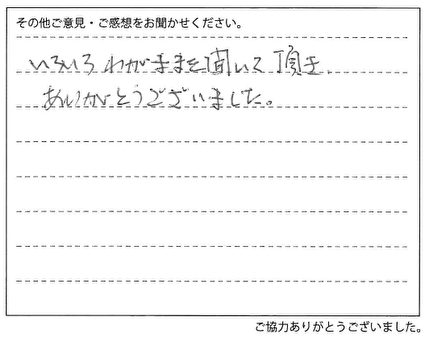 その他ご意見・ご感想をお聞かせください。
いろいろわがままを聞いて頂き、
ありがとうございました。
ご協力ありがとうございました。